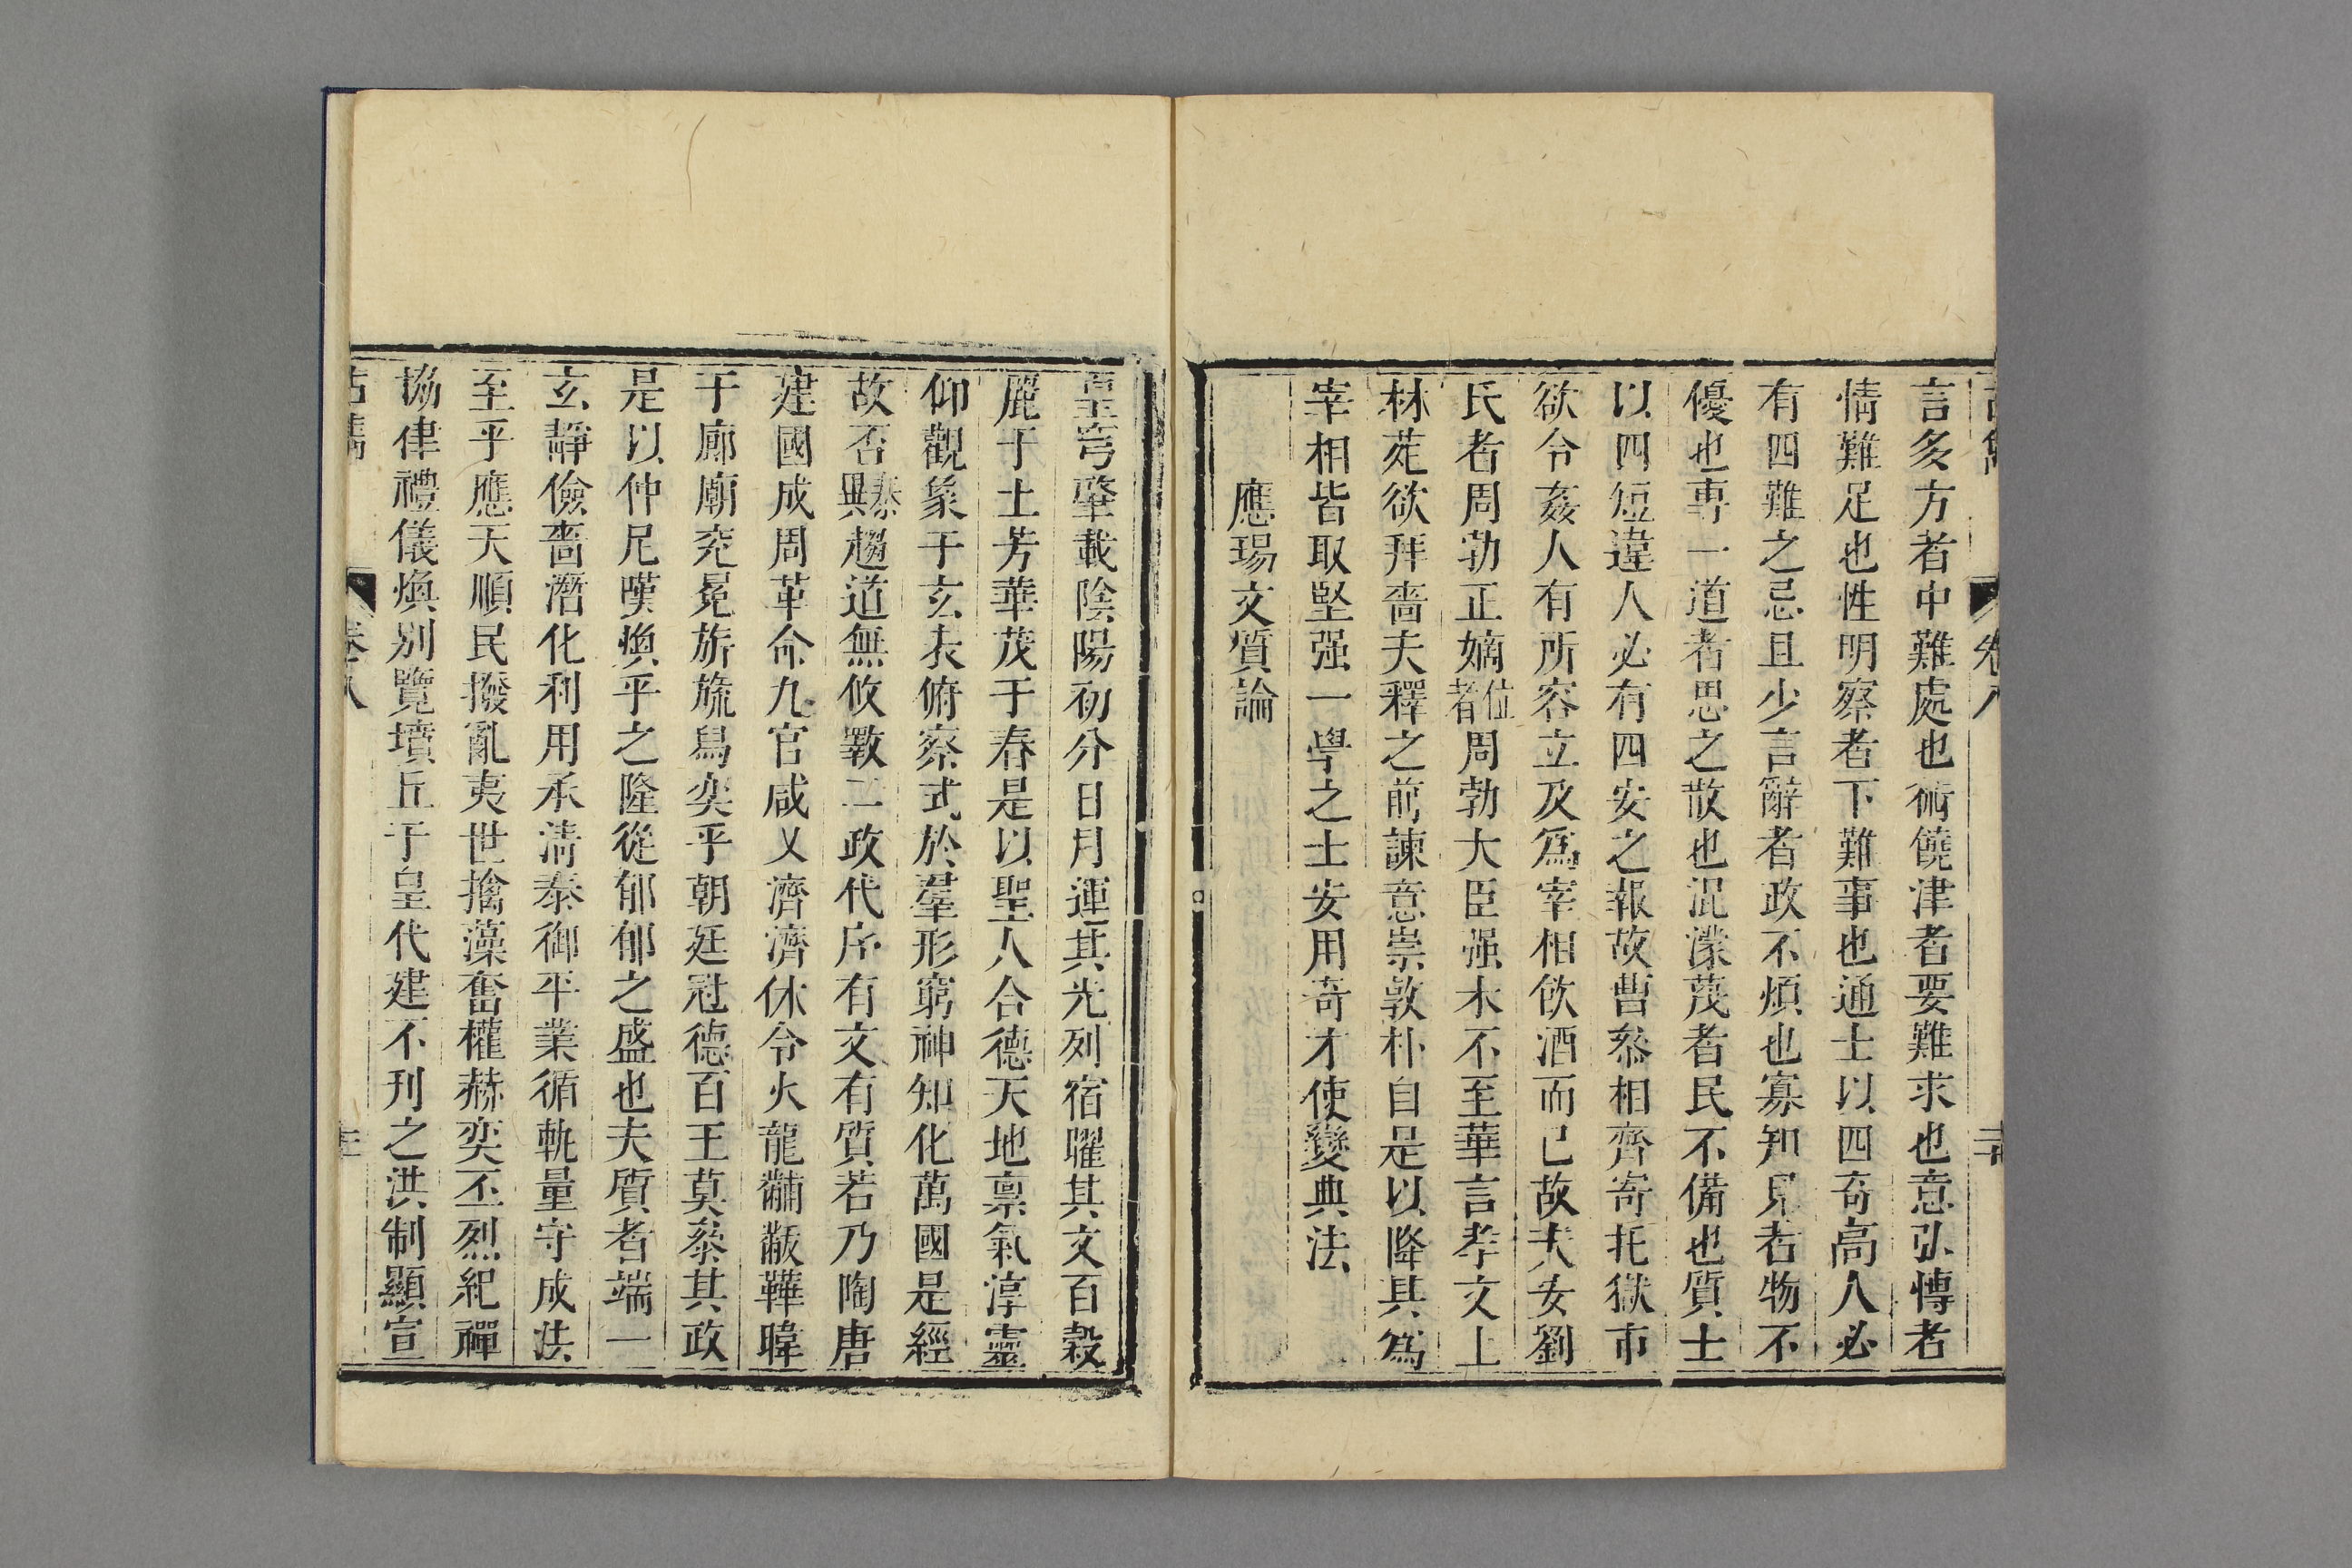 言多方者中難處也術饒津者要難求也意弘愽者
情難足也性明察者下難事也通士以四奇高人必
有四難之忌且少言辭者政不煩也寡知見者物不
優也専一道者思之散也泥濛茂者民不備也質士
以四短違人必有四安之報故曹叅相齊寄托獄市
欲令姦人有所容立及爲宰相飲酒而已故夫安劉
氏者周勃正嫡位者周勃大臣强木不至華言孝文上
林苑欲拜嗇夫釋之前諫意崇敦朴自是以降其爲
宰相皆取堅强一學之士安用奇才使變典法
應瑒文質論
皇穹肇載陰陽初分日月運其光列宿曜其文百穀
麗于土芳華茂于春是以聖人合德天地禀氣淳靈
仰觀象于玄表俯察式於羣形窮神知化萬國是經
故否泰異趨道無攸斁二政代序有文有質若乃陶唐
建國成周革命九官咸乂濟濟休令火龍黼黻韡暐
于廊廟兖冕旂旒舄奕乎朝廷冠德百王莫叅其政
是以仲尼嘆煥乎之隆從郁郁之盛也夫質者端一
玄靜儉嗇潛化利用承淸泰御平業循軌量守成法
至乎應天順民撥亂夷世擒藻奮權赫奕丕烈紀禪
協律禮儀煥别覽墳丘于皇代建不刋之洪制顯宣
卷八